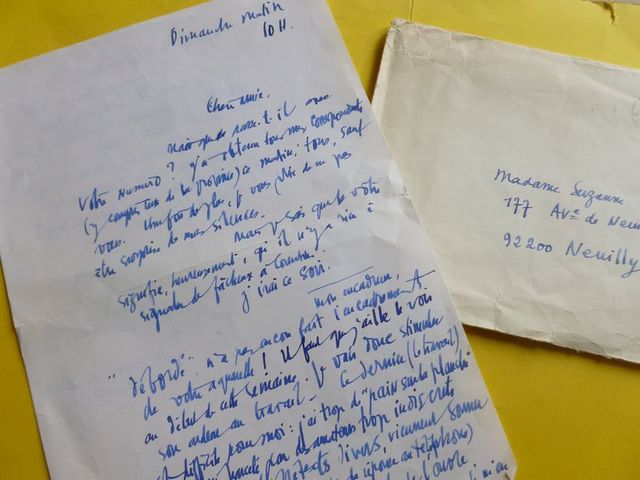 Dimanche matin
10 H.
Chère amie.
Mais que se passe-t-il avec
votre numéro? j'ai obtenu tous mes correspondants
(y compris ceux de la province) ce matin, tous, sauf
vous. Une fois de plus, je vous prie de ne pas
être surprise de mes silences.
Mais je sais que le vôtre
signifie, heureusement, qu'il n'y a rien à
signaler de fâcheux à
j'irai ce soir.
mon encadreur,
"débordé", n'a pas encore fait l'encadrement
de votre aquarelle! Il faut que j'aille le voir
au début de cette semaine. Je vais donc stimuler
son ardeur au travail. Ce dernier (le travail)
difficile pour moi: j'ai trop de "pain sur la planche"
par des amateurs trop indiscrets
divers, viennent sonner
de répondre au téléphone)
Madame Suzanne
177 Ave de Neu
92200 Neuilly